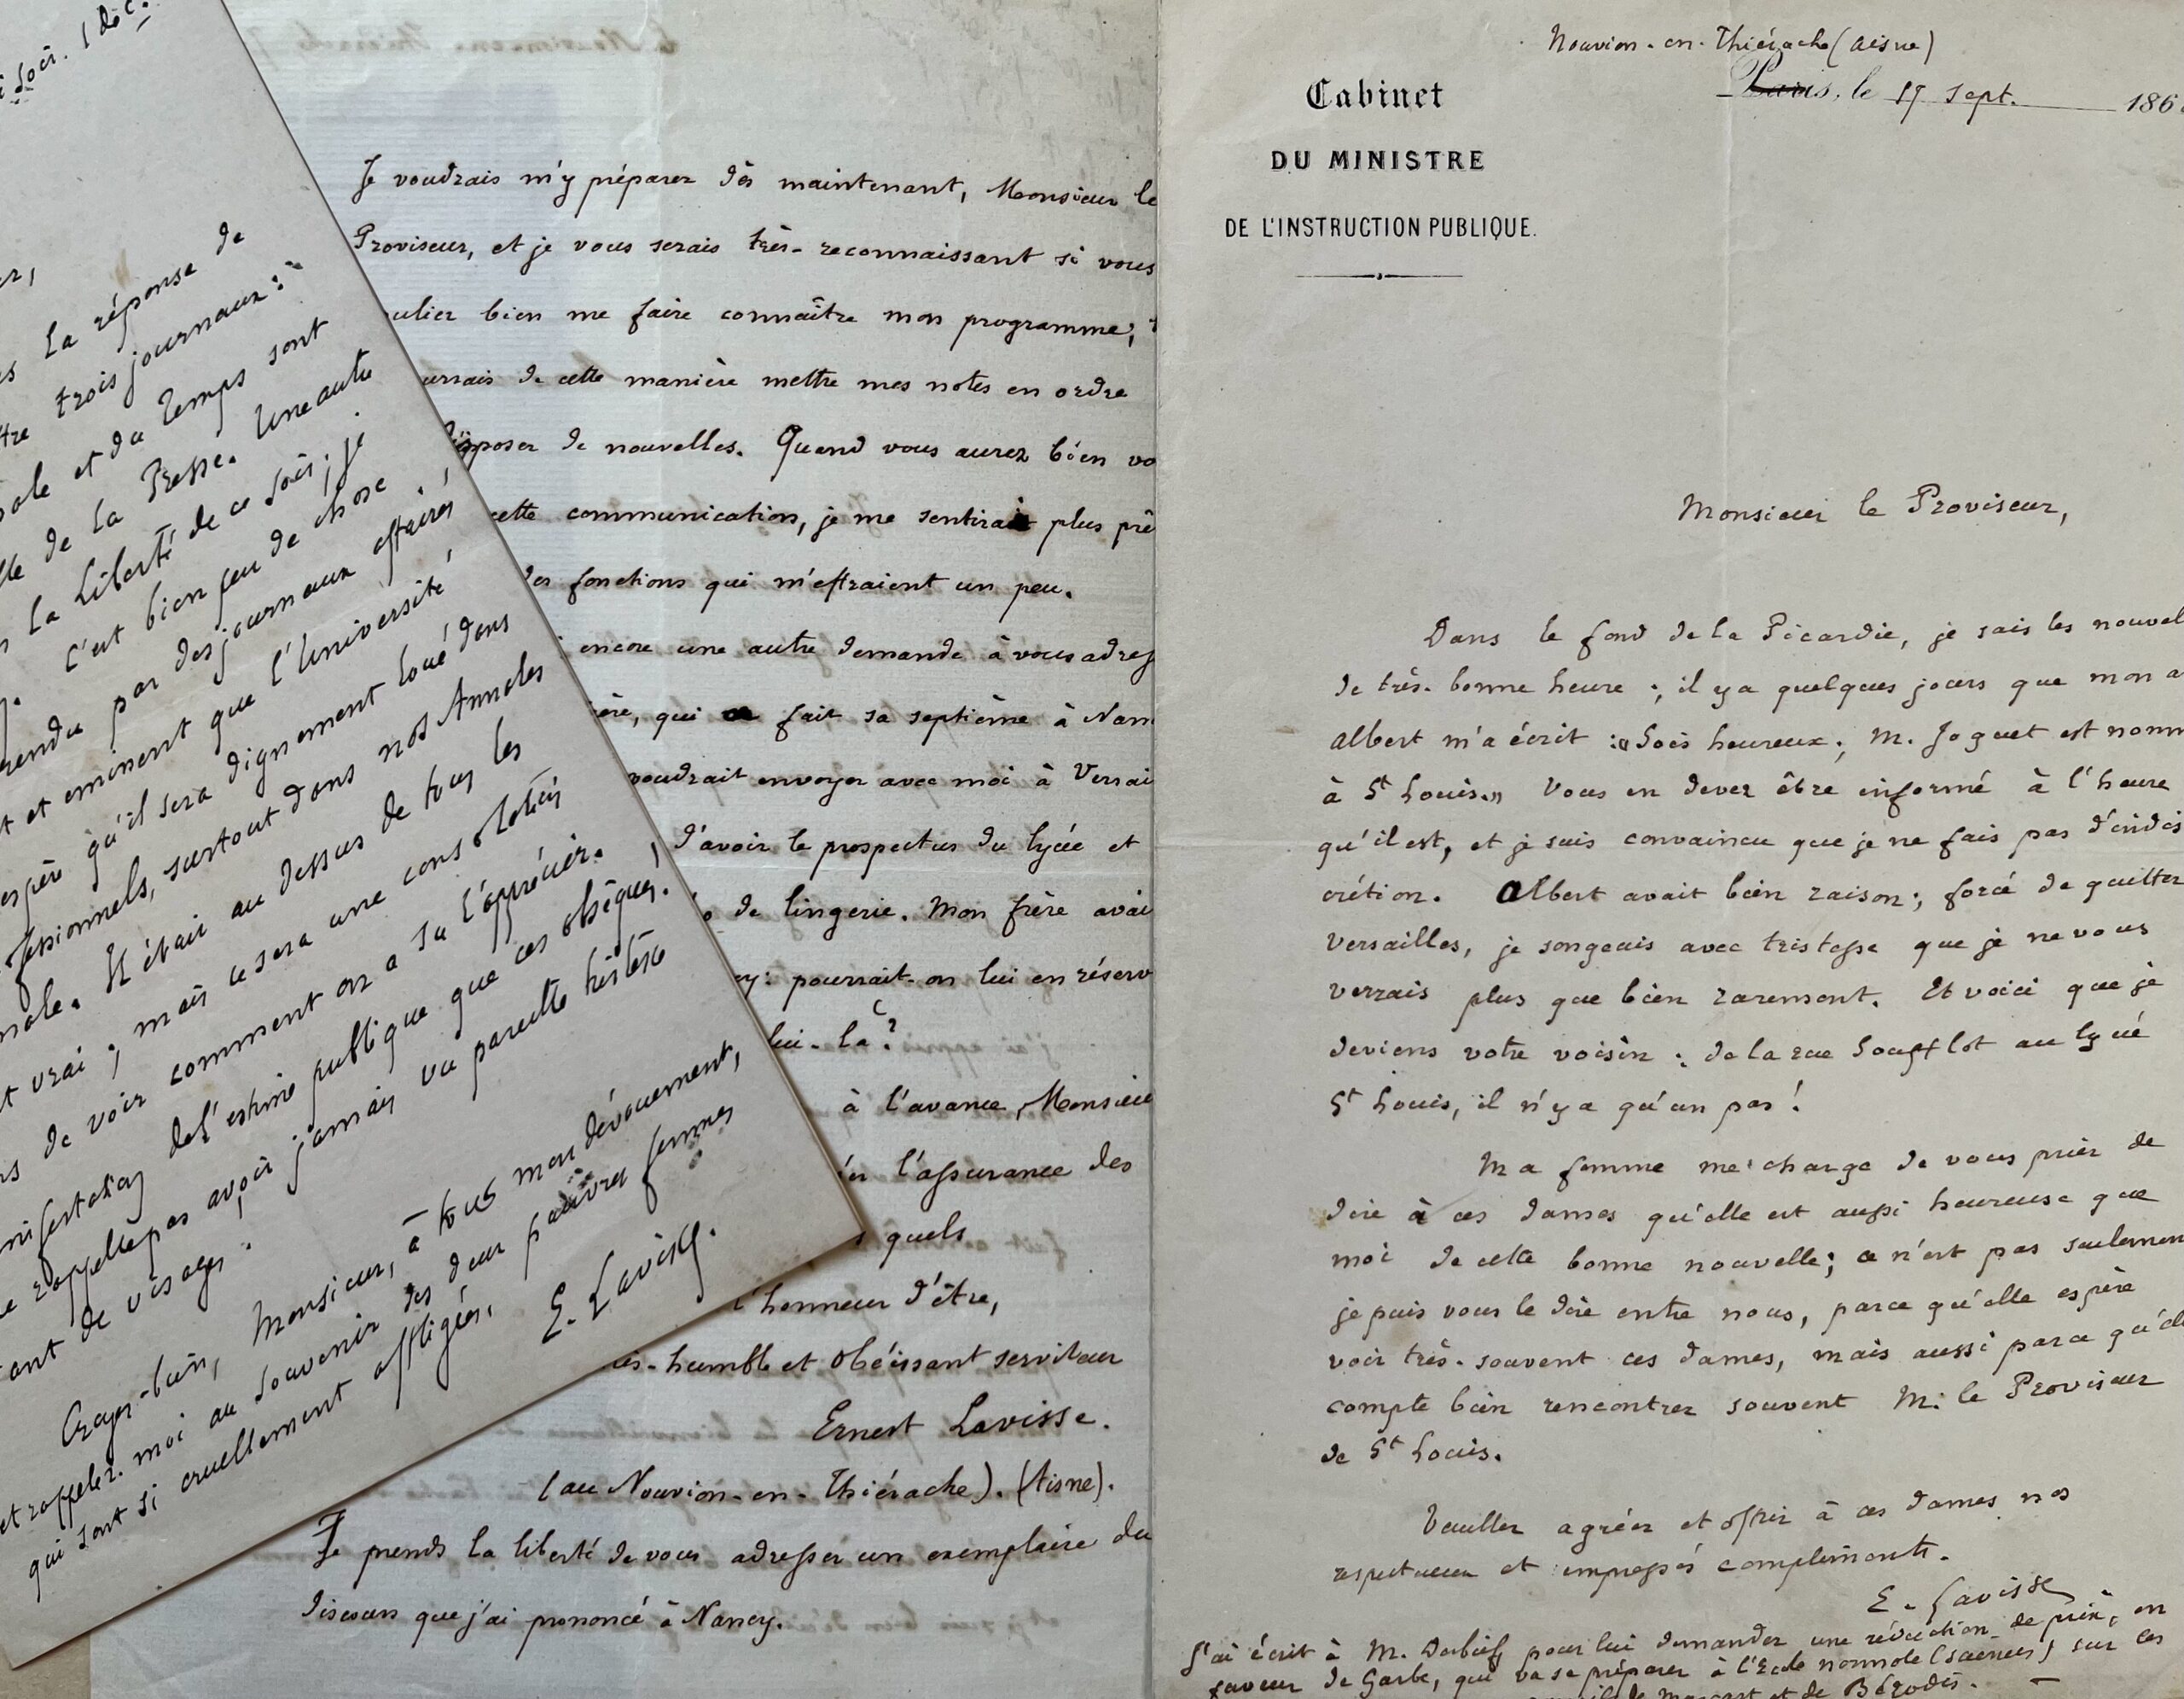 i soir. 1 déc.
la réponse de
trois journaux :
et du Temps sont
de la Presse. Une autre
la Liberté de ce soir ; je
c'est bien peu de chose
rendu par des journaux affairés,
et eminent que l'Université
espère qu'il sera dignement loué dans
fessionnels, surtout dans nos Annales
male. Il était au dessus de tous les
t vrai ; mais ce sera une consolation
de voir comment on a su l'apprécier.
nifestation de l'estime publique que ces obsèques.
e rappelle pas avoir jamais vu pareille tristesse
ant de visages.
Croyez-bien, Monsieur, à tout mon dévouement,
et rappelez-moi au souvenir des deux pauvres femmes
qui sont si cruellement affligées.
E. Lavisse.
Je voudrais m'y préparer dès maintenant, Monsieur le
Proviseur, et je vous serais très-reconnaissant si vous
oulier bien me faire connaître mon programme ;
urrais de cette manière mettre mes notes en ordre
poser de nouvelles. Quand vous aurez bien vo
cette communication, je me sentirai plus prê
des fonctions qui m'effraient un peu.
encore une autre demande à vous adres
ère, qui a fait sa septième à Nan
voudrait envoyer avec moi à Versai
d'avoir le prospectus du lycée et
de lingerie. Mon frère avai
cy : pourrait-on lui en réserv
lui-là ?
à l'avance, Monsieu
er l'assurance des
s quels
l'honneur d'être,
ès-humble et obéissant serviteur
Ernest Lavisse.
(au Nouvion-en-Thiérache). (Aisne).
Je prends la liberté de vous adresser un exemplaire du
discours que j'ai prononcé à Nancy.
Nouvion-en-Thiérache (Aisne)
Cabinet
DU MINISTRE
DE L'INSTRUCTION PUBLIQUE.
Paris, le 19 sept. 186
Monsieur le Proviseur,
Dans le fond de la Picardie, je sais les nouvel
de très-bonne heure ; il y a quelques jours que mon a
Albert m'a écrit : « Sois heureux ; M. Joguet est nomm
à St Louis. » Vous en devez être informé à l'heure
qu'il est, et je suis convaincu que je ne fais pas d'indis
crétion. Albert avait bien raison ; forcé de quitter
Versailles, je songeais avec tristesse que je ne vous
verrais plus que bien rarement. Et voici que je
deviens votre voisin : de la rue Soufflot au lycée
St Louis, il n'y a qu'un pas !
Ma femme me charge de vous prier de
dire à ces dames qu'elle est aussi heureuse que
moi de cette bonne nouvelle ; ce n'est pas seulemen
je puis vous le dire entre nous, parce qu'elle espère
voir très-souvent ces dames, mais aussi parce qu'ell
compte bien rencontrer souvent M. le Proviseur
de St Louis.
Veuillez agréer et offrir à ces dames nos
respectueux et empressés compliments.
E. Lavisse
J'ai écrit à M. pour lui demander une réduction de prix, en
faveur de Garbe, qui va se préparer à l'Ecole normale (sciences) sur les
de Mascart et de